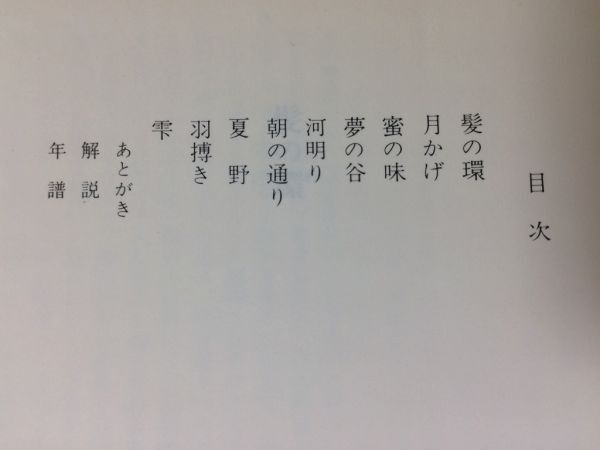 目次
髪の環
月かげ
蜜の味
夢の谷
河明り
朝の通り
夏野
羽搏き
雫
あとがき
解説
年譜